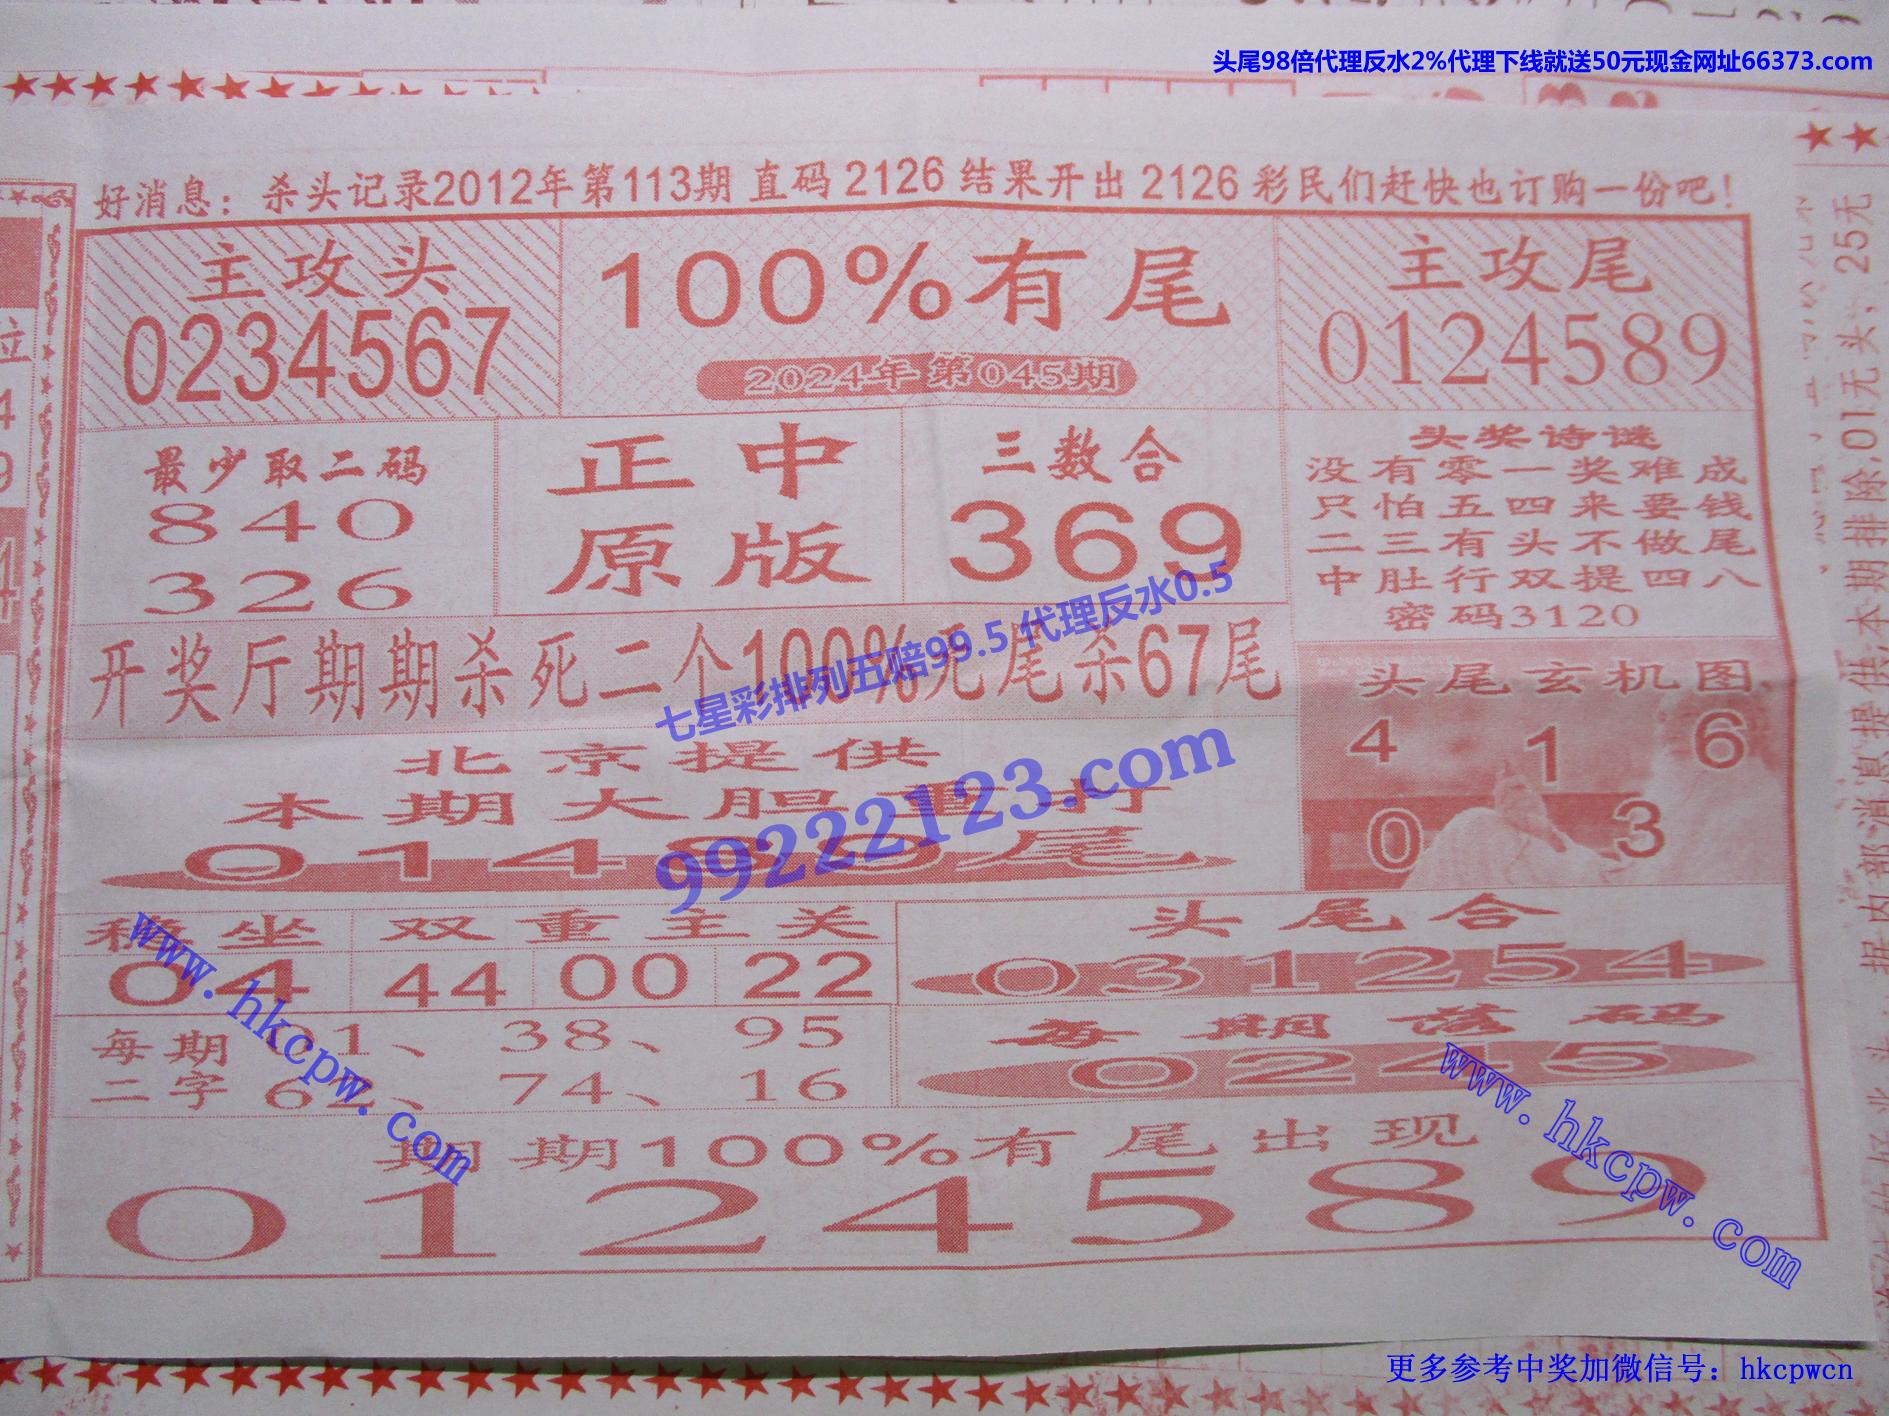 头尾98倍代理反水2%代理下线就送50元现金网址66373.com
好消息：杀头记录2012年第113期 直码 2126 结果开出 2126 彩民们赶快也订购一份吧！
主攻头
0234567
100%有尾
2024年第045期
主攻尾
0124589
最少取二码
840
326
正中
原版
三数合
369
头奖诗谜
没有零一奖难成
只怕五四来要钱
二三有头不做尾
中肚行双提四八
密码3120
开奖厅期期杀死二个100%无尾杀67尾
七星彩排列五赔99.5 代理反水0.5
99222123.com
头尾玄机图
4 1 6
0 3
北京提供
本期大胆
尾
稳坐
04
双重主关
44 00 22
头尾合
031254
每期二字
01、38、95
62、74、16
每期落码
0245
www.hkcpw.com
www.hkcpw.com
期期100%有尾出现
0124589
据内部消息提供，本期排除，01无头，25无
更多参考中奖加微信号：hkcpwcn